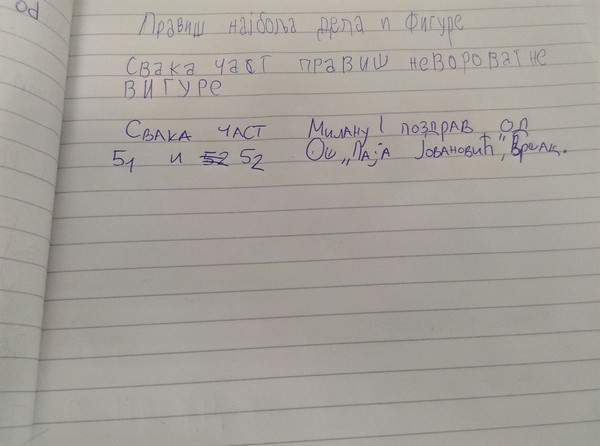 od
Правиш најбоља дела и фигуре
Свака част правиш невороватне
вигуре
Свака част Милану! поздрав од
5₁ и 5₂ Ош „Паја Јовановић", Вршац.